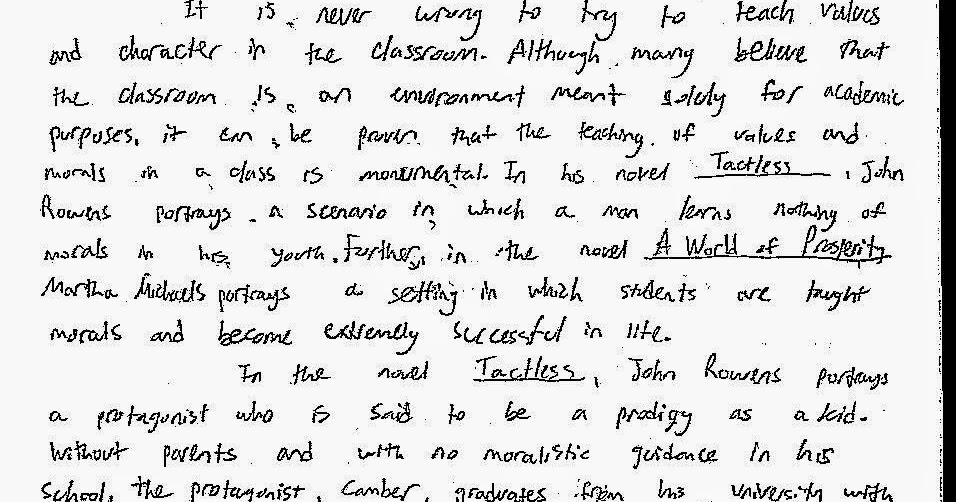 It is never wrong to try to teach values
and character in the classroom. Although many believe that
the classroom is an environment meant solely for academic
purposes, it can be proven that the teaching of values and
morals in a class is monumental. In his novel Tactless, John
Rowens portrays a scenario in which a man lerns nothing of
morals in his youth. Further, in the novel A World of Prosperity
Martha Michaels portrays a setting in which students are taught
morals and become extremely successful in life.
In the novel Tactless, John Rowens portrays
a protagonist who is said to be a prodigy as a kid.
Without parents and with no moralistic guidance in his
school, the protagonist, Camber, graduates from his university with